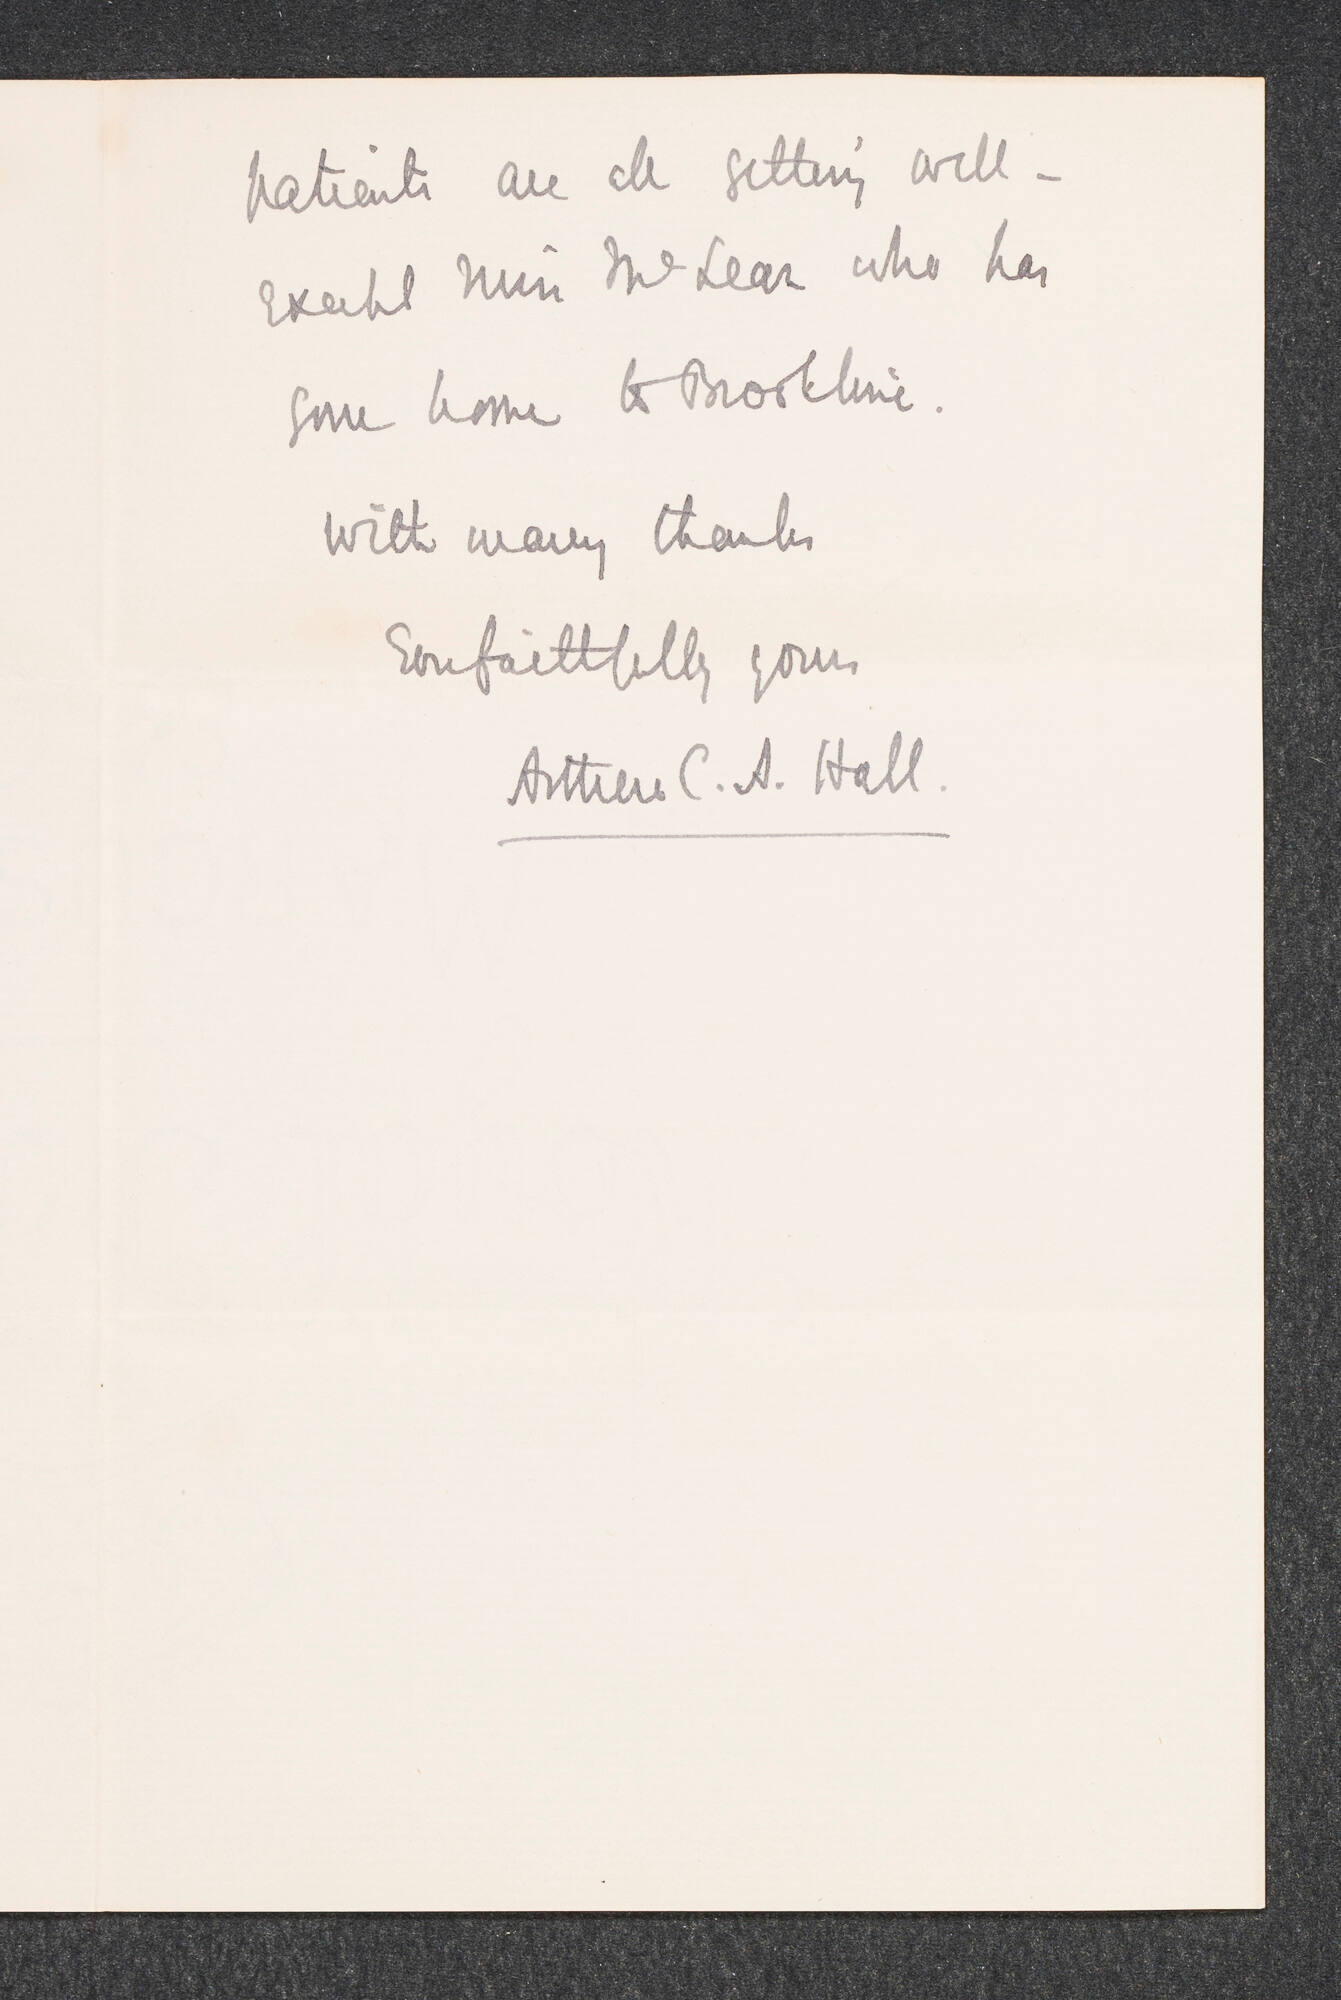 patients are all getting well –
except Miss McLear who has
gone home to Brookline.
With many thanks
faithfully yours
Arthur C. A. Hall.